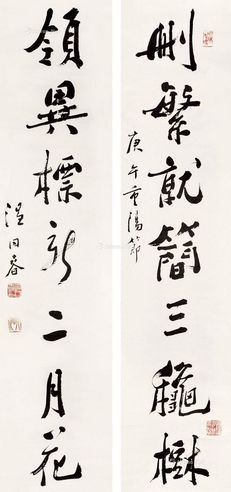 删繁就簡三穐樹
庚午重陽節
領異標新二月花
同春